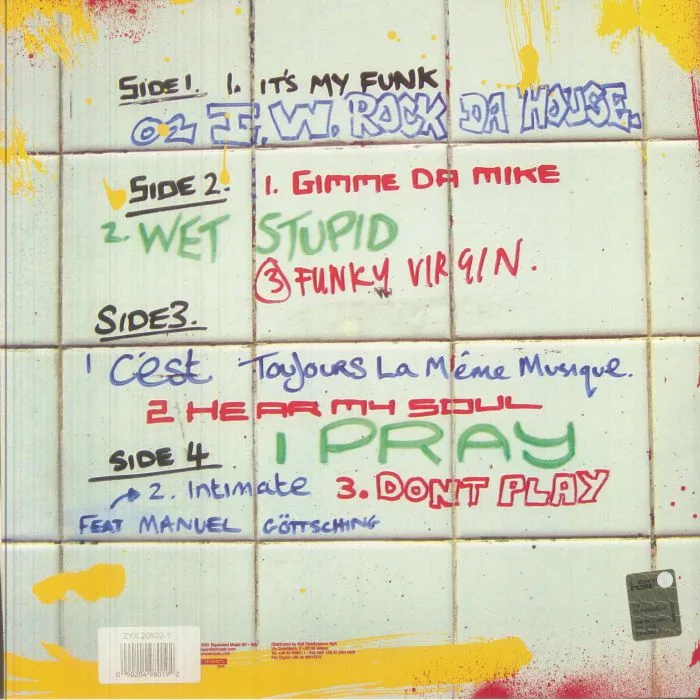 SIDE 1. 1. IT'S MY FUNK
02 I.W. ROCK DA HOUSE.
SIDE 2. 1. GIMME DA MIKE
2. WET STUPID
③ FUNKY VIRGIN.
SIDE3.
1 C'est Toujours La Même Musique.
2 HEAR MY SOUL
1 PRAY
SIDE 4
2. Intimate 3. DON'T PLAY
FEAT MANUEL GÖTTSCHING
ZYX 20602-1
0 90204 98019 2